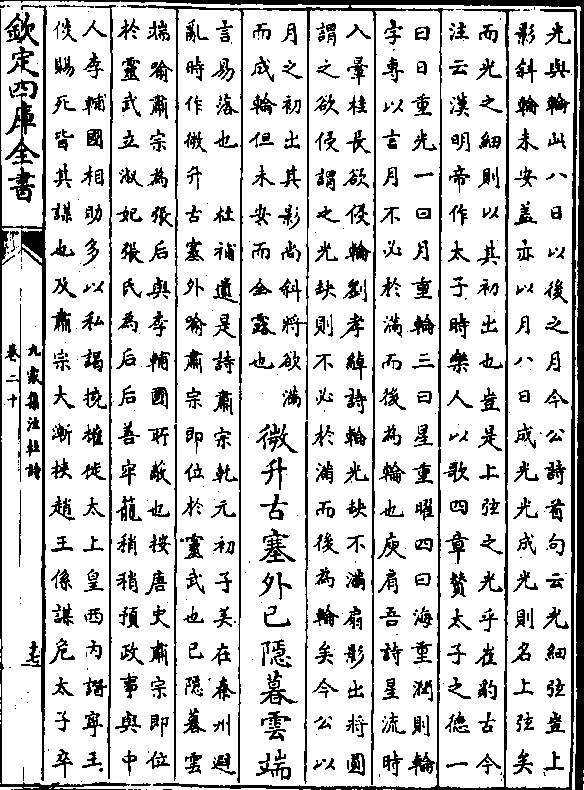 光與輪此八日以後之月今公詩首句云光細弦豈上
影斜輪未安蓋亦以月八日成光光成光則名上弦矣
而光之細則以其初出也豈是上弦之光乎崔豹古今
注云漢明帝作太子時樂人以歌四章贊太子之德一
曰日重光一曰月重輪三曰星重曜四曰海重潤則輪
字專以言月不必於滿而後為輪也庾肩吾詩星流時
入暈桂長欲侵輪劉孝綽詩輪光缺不滿扇影出將圓
謂之欲侵謂之光缺則不必於滿而後為輪矣今公以
月之初出其影尚斜將欲滿
而成輪但未安而全露也
微升古塞外已隱暮雲端
言易落也 杜補遺是詩肅宗乾元初子美在秦州避
亂時作微升古塞外喻肅宗即位於靈武也已隱暮雲
端喻肅宗為張后與李輔國所蔽也按唐史肅宗即位
於靈武立淑妃張氏為后后善牢籠稍稍預政事與中
人李輔國相助多以私謁撓權徙太上皇西内譖寧王
倓賜死皆其謀也及肅宗大漸挾趙王係謀危太子卒
欽定四庫全書
九家集注杜詩
卷二十
十七